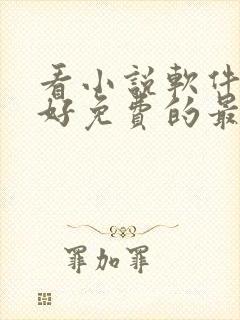 看小說軟件
好免費的最
罪加罪